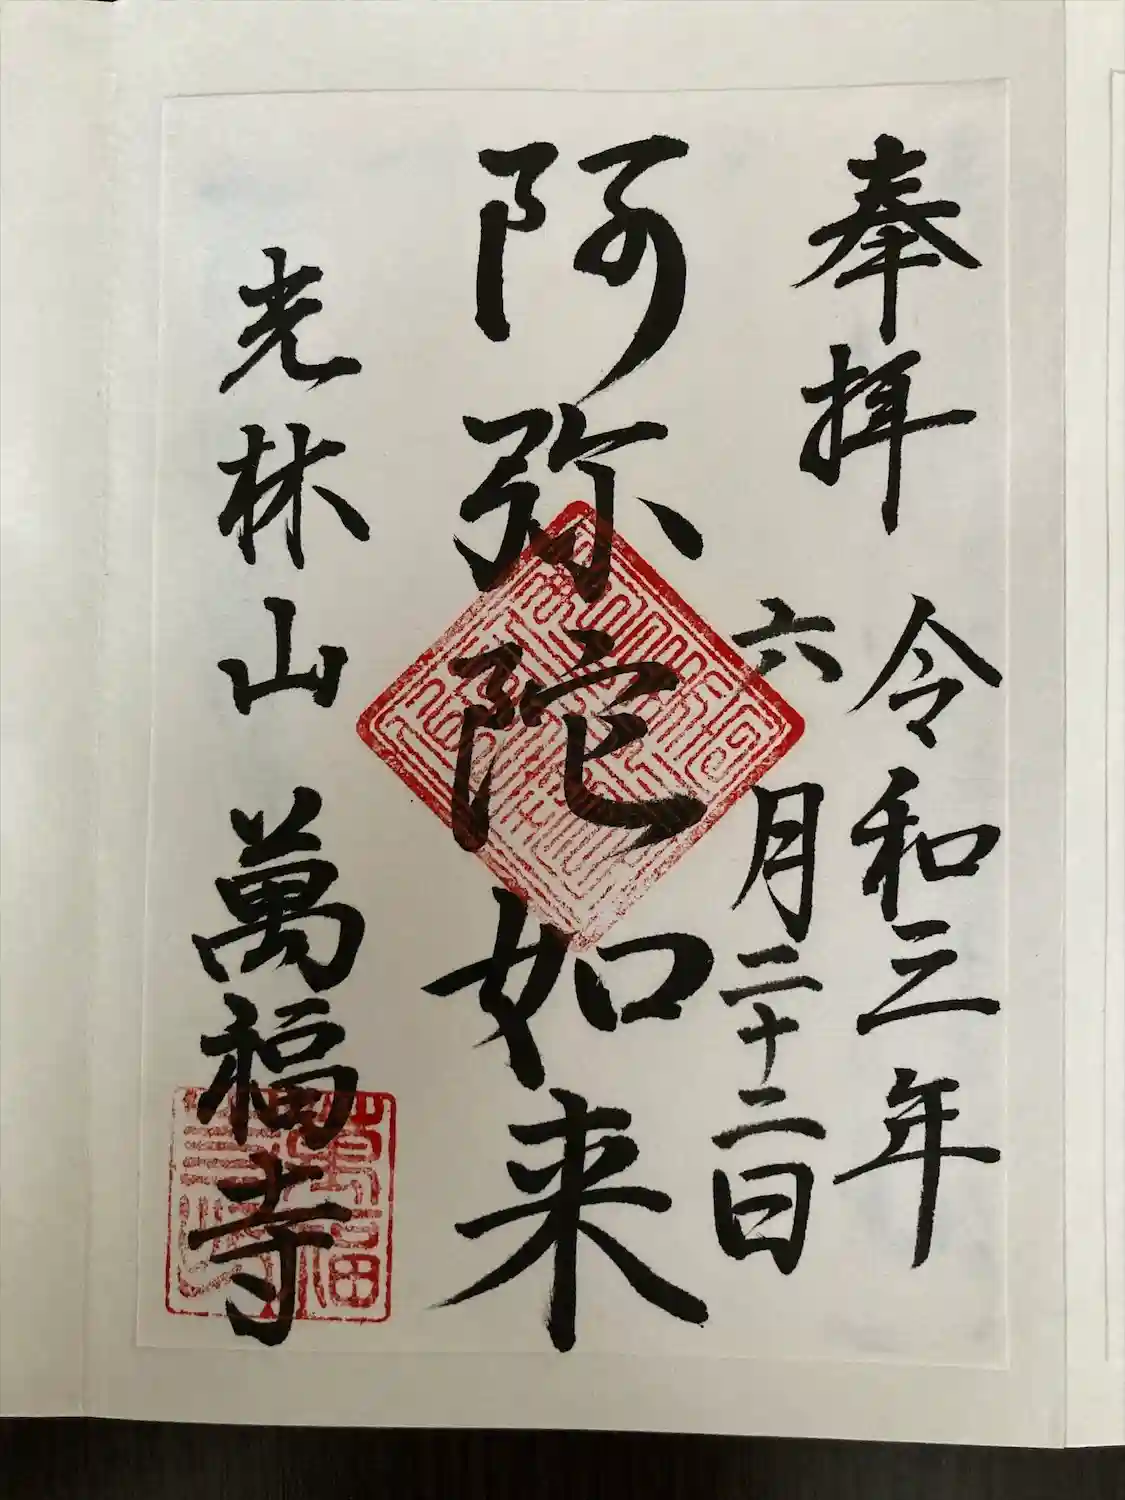 奉拝 令和三年
六月二十二日
阿弥陀如来
光林山 萬福寺